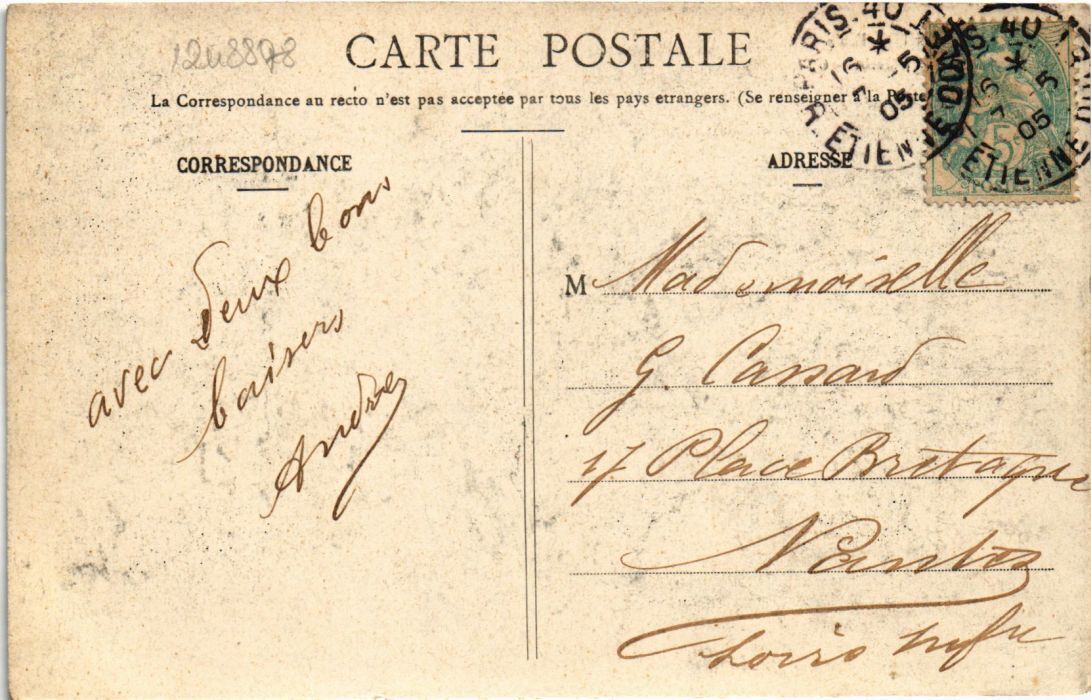 1248878
CARTE POSTALE
La Correspondance au recto n'est pas acceptée par tous les pays etrangers. (Se renseigner à la Poste
CORRESPONDANCE
avec deux bons
baisers
André
ADRESSE
M Mademoiselle
G. Cassard
17 Place Bretagne
Nantes
Loire Infre
PARIS. 40
R. ETIENNE
05
5
PARIS. 40
ETIENNE
05